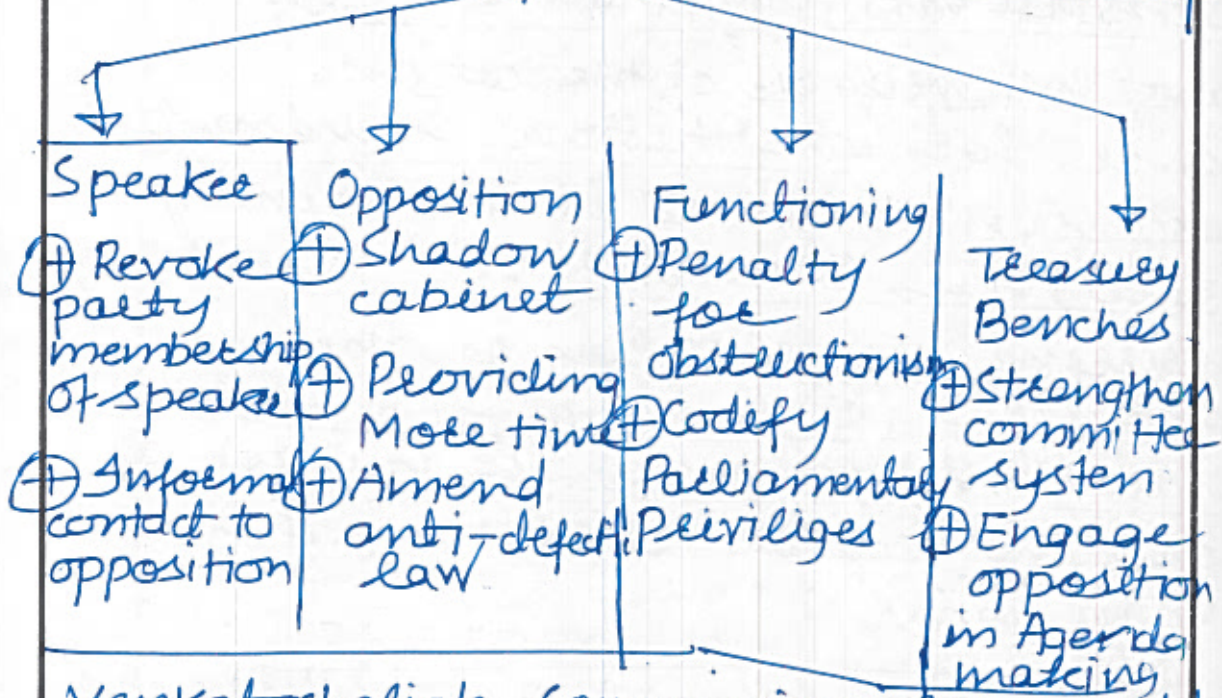 Speaker
⊕ Revoke
party
membership
of speaker
⊕ Informal
contact to
opposition
Opposition
⊕ Shadow
cabinet
⊕ Providing
More time
⊕ Amend
anti-defecti
law
Functioning
⊕ Penalty
for
obstructionism
⊕ Codify
Parliamentary
Priviliges
Treasury
Benches
⊕ Strengthen
committee
system
⊕ Engage
opposition
in Agenda
making.